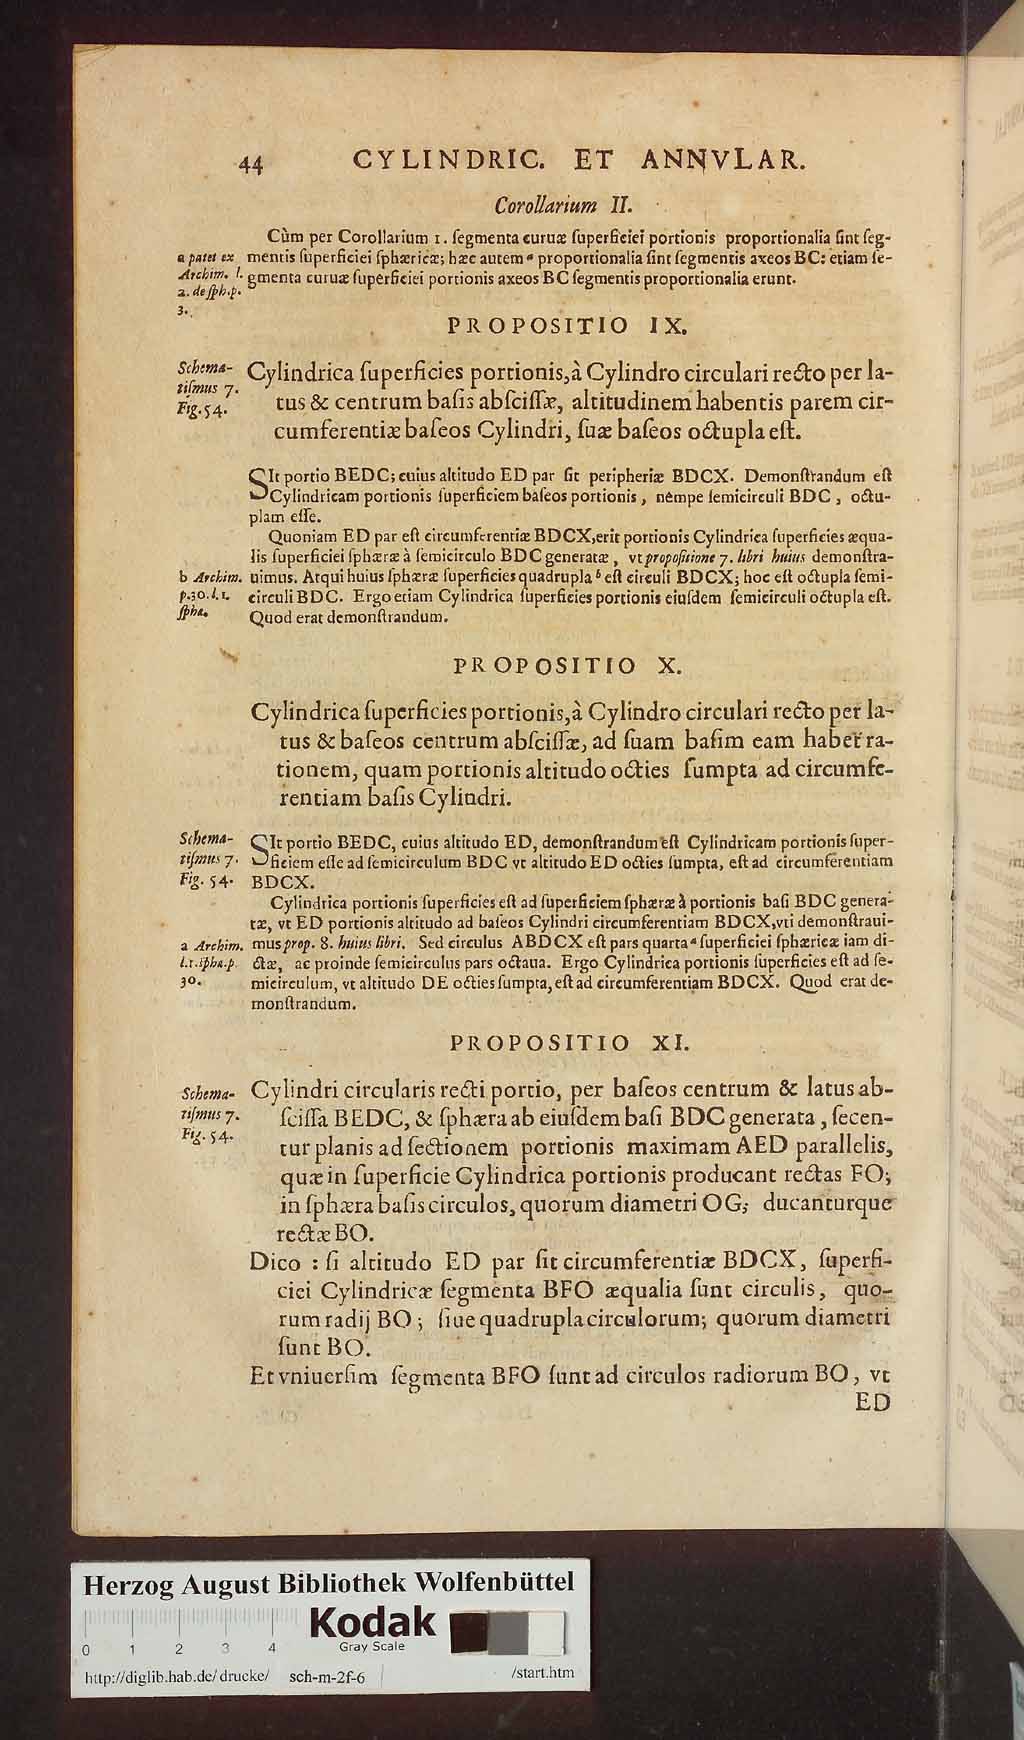 44 CYLINDRIC. ET ANNVLAR.
Corollarium II.
Cùm per Corollarium 1. ſegmenta curuæ ſuperficiei portionis proportionalia ſint ſeg-
a patet ex mentis ſuperficiei ſphæricæ; hæc autem a proportionalia ſint ſegmentis axeos BC: etiam ſe-
Archim. l. gmenta curuæ ſuperficiei portionis axeos BC ſegmentis proportionalia erunt.
2. de ſph. p.
3.
PROPOSITIO IX.
Schema- Cylindrica ſuperficies portionis, à Cylindro circulari recto per la-
tiſmus 7. tus & centrum baſis abſciſſæ, altitudinem habentis parem cir-
Fig. 54. cumferentiæ baſeos Cylindri, ſuæ baſeos octupla eſt.
SIt portio BEDC; cuius altitudo ED par ſit peripheriæ BDCX. Demonſtrandum eſt
Cylindricam portionis ſuperficiem baſeos portionis, nempe ſemicirculi BDC, octu-
plam eſſe.
Quoniam ED par eſt circumferentiæ BDCX, erit portionis Cylindrica ſuperficies æqua-
lis ſuperficiei ſphæræ à ſemicirculo BDC generatæ, vt propoſitione 7. libri huius demonſtra-
b Archim. uimus. Atqui huius ſphæræ ſuperficies quadrupla b eſt circuli BDCX; hoc eſt octupla ſemi-
p. 30. l. 1. circuli BDC. Ergo etiam Cylindrica ſuperficies portionis eiuſdem ſemicirculi octupla eſt.
ſphæ. Quod erat demonſtrandum.
PROPOSITIO X.
Cylindrica ſuperficies portionis, à Cylindro circulari recto per la-
tus & baſeos centrum abſciſſæ, ad ſuam baſim eam habet ra-
tionem, quam portionis altitudo octies ſumpta ad circumfe-
rentiam baſis Cylindri.
Schema- SIt portio BEDC, cuius altitudo ED, demonſtrandum eſt Cylindricam portionis ſuper-
tiſmus 7. ficiem eſſe ad ſemicirculum BDC vt altitudo ED octies ſumpta, eſt ad circumferentiam
Fig. 54. BDCX.
Cylindrica portionis ſuperficies eſt ad ſuperficiem ſphæræ à portionis baſi BDC genera-
tæ, vt ED portionis altitudo ad baſeos Cylindri circumferentiam BDCX, vti demonſtraui-
a Archim. mus prop. 8. huius libri. Sed circulus ABDCX eſt pars quarta a ſuperficiei ſphæricæ iam di-
l. 1. ſphæ. p. ctæ, ac proinde ſemicirculus pars octaua. Ergo Cylindrica portionis ſuperficies eſt ad ſe-
30. micirculum, vt altitudo DE octies ſumpta, eſt ad circumferentiam BDCX. Quod erat de-
monſtrandum.
PROPOSITIO XI.
Schema- Cylindri circularis recti portio, per baſeos centrum & latus ab-
tiſmus 7. ſciſſa BEDC, & ſphæra ab eiuſdem baſi BDC generata, ſecen-
Fig. 54. tur planis ad ſectionem portionis maximam AED parallelis,
quæ in ſuperficie Cylindrica portionis producant rectas FO;
in ſphæra baſis circulos, quorum diametri OG; ducanturque
rectæ BO.
Dico : ſi altitudo ED par ſit circumferentiæ BDCX, ſuperfi-
ciei Cylindricæ ſegmenta BFO æqualia ſunt circulis, quo-
rum radij BO; ſiue quadrupla circulorum; quorum diametri
ſunt BO.
Et vniuerſim ſegmenta BFO ſunt ad circulos radiorum BO, vt
ED
Herzog August Bibliothek Wolfenbüttel
Kodak
0 1 2 3 4 Gray Scale
http://diglib.hab.de/drucke/ sch-m-2f-6 /start.htm